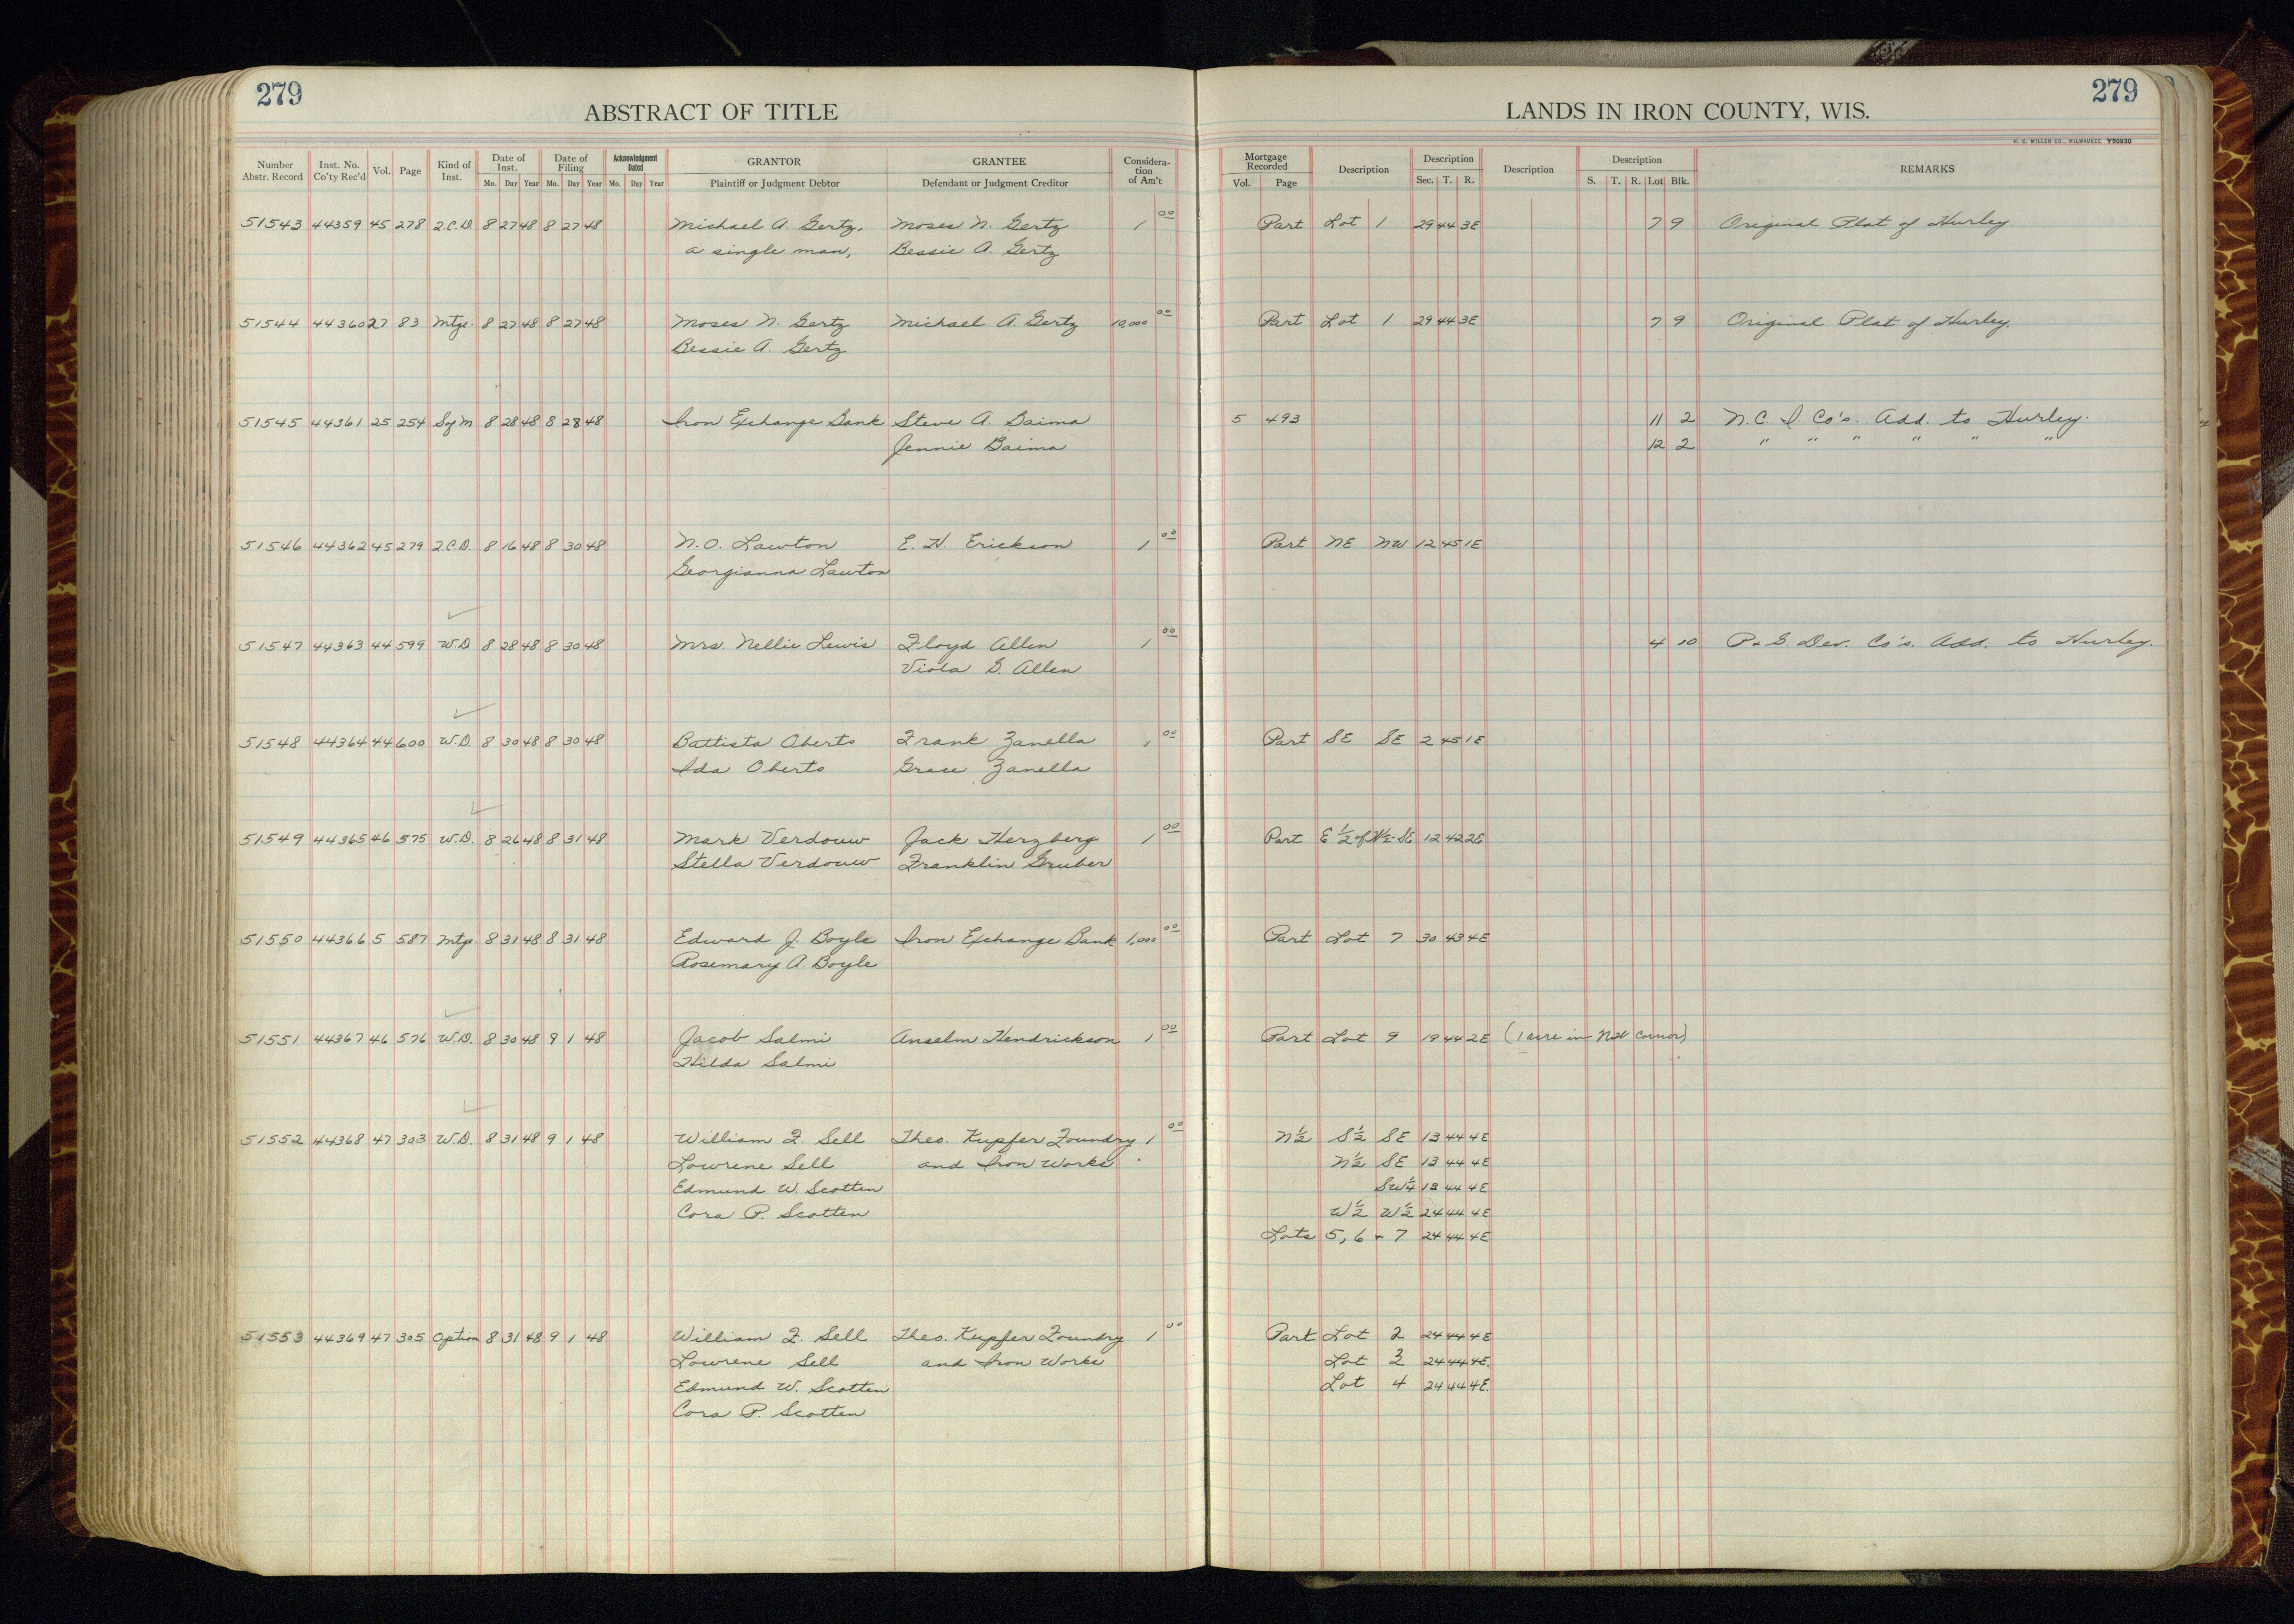 279
ABSTRACT OF TITLE
LANDS IN IRON COUNTY, WIS.
279
H. C. MILLER CO., MILWAUKEE Y50930
Number Abstr. Record Inst. No. Co'ty Rec'd Vol. Page Kind of Inst. Date of Inst. Mo. Day Year Date of Filing Mo. Day Year Acknowledgment Dated Mo. Day Year GRANTOR Plaintiff or Judgment Debtor GRANTEE Defendant or Judgment Creditor Considera-tion of Am't Mortgage Recorded Vol. Page Description Description Sec. T. R. Description Description S. T. R. Lot Blk. REMARKS
51543 44359 45 278 Q.C.D. 8 27 48 8 27 48 Michael A. Gertz, Moses N. Gertz 1 00 Part Lot 1 29 44 3E 7 9 Original Plat of Hurley.
a single man, Bessie A. Gertz
51544 44360 27 83 Mtge. 8 27 48 8 27 48 Moses N. Gertz Michael A. Gertz 10,000 00 Part Lot 1 29 44 3E 7 9 Original Plat of Hurley.
Bessie A. Gertz
51545 44361 25 254 Sg'm 8 28 48 8 28 48 Iron Exchange Bank Steve A. Baima 5 493 11 2 N.C. I. Co's. Add. to Hurley.
Jennie Baima 12 2 " " " " " "
51546 44362 45 279 Q.C.D. 8 16 48 8 30 48 N.O. Lawton E. H. Erickson 1 00 Part NE NW 12 45 1E
Georgianna Lawton
51547 44363 44 599 W.D 8 28 48 8 30 48 Mrs. Nellie Lewis Floyd Allen 1 00 4 10 P. & G Dev. Co's. Add. to Hurley.
Viola G. Allen
51548 44364 44 600 W.D. 8 30 48 8 30 48 Battista Oberto Frank Zanella 1 00 Part SE SE 2 45 1E
Ida Oberto Grace Zanella
51549 44365 46 575 W.D. 8 26 48 8 31 48 Mark Verdouw Jack Herzberg 1 00 Part E 1/2 of W 1/2 SE 12 42 2E
Stella Verdouw Franklin Gruber
51550 44366 5 587 Mtge. 8 31 48 8 31 48 Edward J. Boyle Iron Exchange Bank 1,000 00 Part Lot 7 30 43 4E
Rosemary A. Boyle
51551 44367 46 576 W.D. 8 30 48 9 1 48 Jacob Salmi Anselm Hendrickson 1 00 Part Lot 9 19 44 2E (1 acre in NW cornor)
Hilda Salmi
51552 44368 47 303 W.D. 8 31 48 9 1 48 William F. Sell Theo. Kupfer Foundry 1 00 N 1/2 S 1/2 SE 13 44 4E
Lowrene Sell and Iron Works N 1/2 SE 13 44 4E
Edmund W. Scotten SW 1/4 13 44 4E
Cora P. Scotten W 1/2 W 1/2 24 44 4E
Lots 5, 6 & 7 24 44 4E
51553 44369 47 305 Option 8 31 48 9 1 48 William F. Sell Theo. Kupfer Foundry 1 00 Part Lot 2 24 44 4E
Lowrene Sell and Iron Works Lot 3 24 44 4E.
Edmund W. Scotten Lot 4 24 44 4E.
Cora P. Scotten